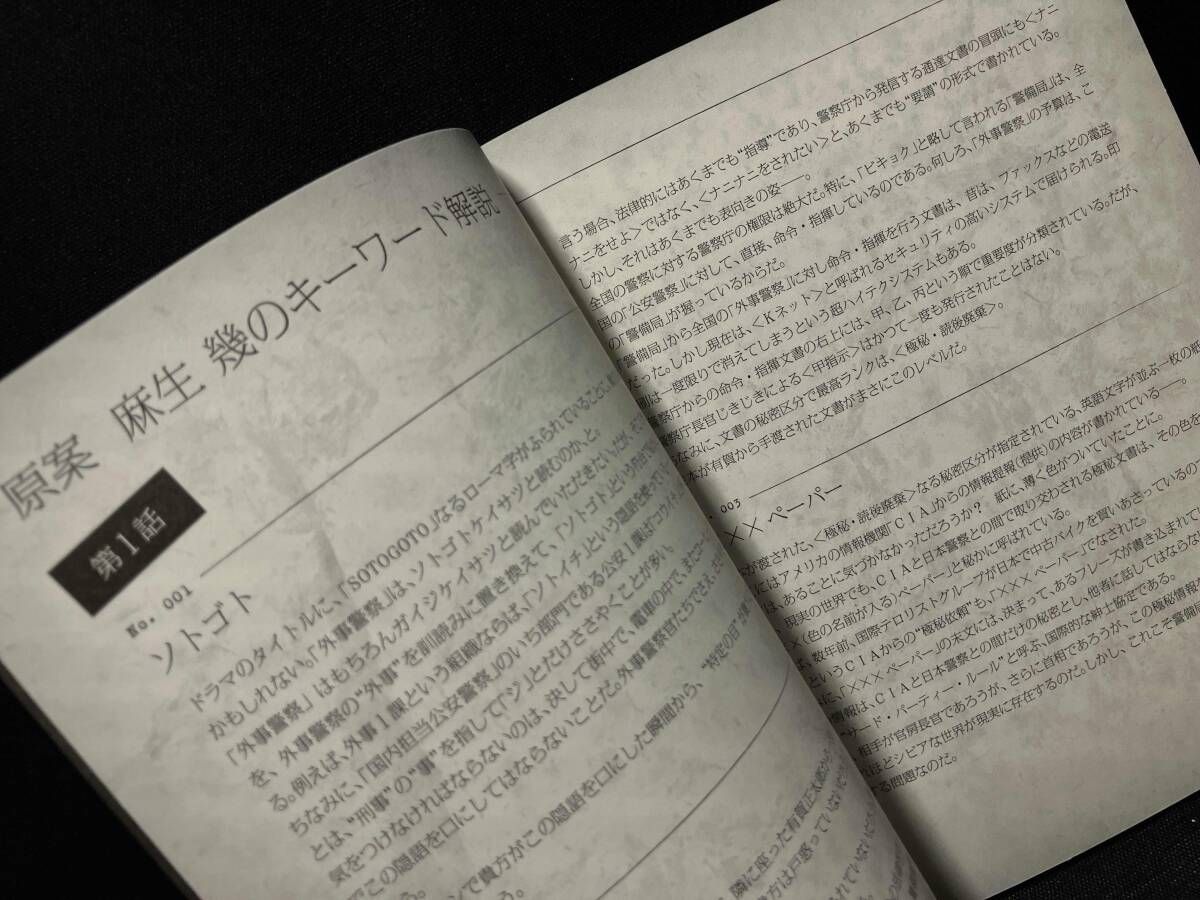 原案 麻生 幾のキーワード解説
第1話
No. 001
ソトゴト
ドラマのタイトルに、「SOTOGOTO」なるローマ字がふられていることに、
かもしれない。「外事警察」は、ソトゴトケイサツと読むのか、と。
「外事警察」はもちろんガイジケイサツと読んでいただきたいのだが、
を、外事警察の“外事”を訓読みに置き換えて、「ソトゴト」という
る。例えば、外事1課という組織ならば、「ソトイチ」という隠語を使って
ちなみに、「国内担当公安警察」のいち部門である公安1課は「コウ
とは、“刑事”の“事”を指して「ジ」とだけささやくことが多い。
気をつけなければならないのは、決して街中で、電車の中で、また
でこの隠語を口にしてはならないことだ。外事警察官たちでさえ
ンで貴方がこの隠語を口にした瞬間から、“特定の目”が
隣に座った有賀正太郎から
言う場合、法律的にはあくまでも“指導”であり、警察庁から発信する通達文書の冒頭にも<ナニ
ナニをせよ>ではなく、<ナニナニをされたい>と、あくまでも“要請”の形式で書かれている。
しかし、それはあくまでも表向きの姿――。
全国の警察に対する警察庁の権限は絶大だ。特に、「ビキョク」と略して言われる「警備局」は、全
国の「公安警察」に対して、直接、命令・指揮しているのである。何しろ、「外事警察」の予算は、こ
の「警備局」が握っているからだ。
「警備局」から全国の「外事警察」に対し命令・指揮を行う文書は、昔は、ファックスなどの電送
だった。しかし現在は、<Kネット>と呼ばれるセキュリティの高いシステムで届けられる。印
は一度限りで消えてしまうという超ハイテクシステムもある。
察庁からの命令・指揮文書の右上には、甲、乙、丙という順で重要度が分類されている。だが、
察庁長官じきじきによる<甲指示>はかつて一度も発行されたことはない。
なみに、文書の秘密区分で最高ランクは、<極秘・読後廃棄>。
本が有賀から手渡された文書がまさにこのレベルだ。
003
××ペーパー
が渡された、<極秘・読後廃棄>なる秘密区分が指定されている、英語文字が並ぶ一枚の紙
にはアメリカの情報機関「CIA」からの情報提報(提供)の内容が書かれている――。
は、あることに気づかなかっただろうか? 紙に、薄く色がついていたことに。
現実の世界でも、CIAと日本警察との間で取り交わされる極秘文書は、その色を
×(色の名前が入る)ペーパー」と秘かに呼ばれている。
ば、数年前、国際テロリストグループが日本で中古バイクを買いあさっているの
というCIAからの“極秘依頼”も、「×××ペーパー」でなされた。
に、「×××ペーパー」の末文には、決まって、あるフレーズが書き込まれて
情報は、CIAと日本警察との間だけの秘密とし、他者に話してはならない
“サード・パーティー・ルール”と呼ぶ、国際的な紳士協定である。
相手が官房長官であろうが、さらに首相であろうが、この極秘情報
れほどシビアな世界が現実に存在するのだ。しかし、これこそ警備
する問題なのだ。